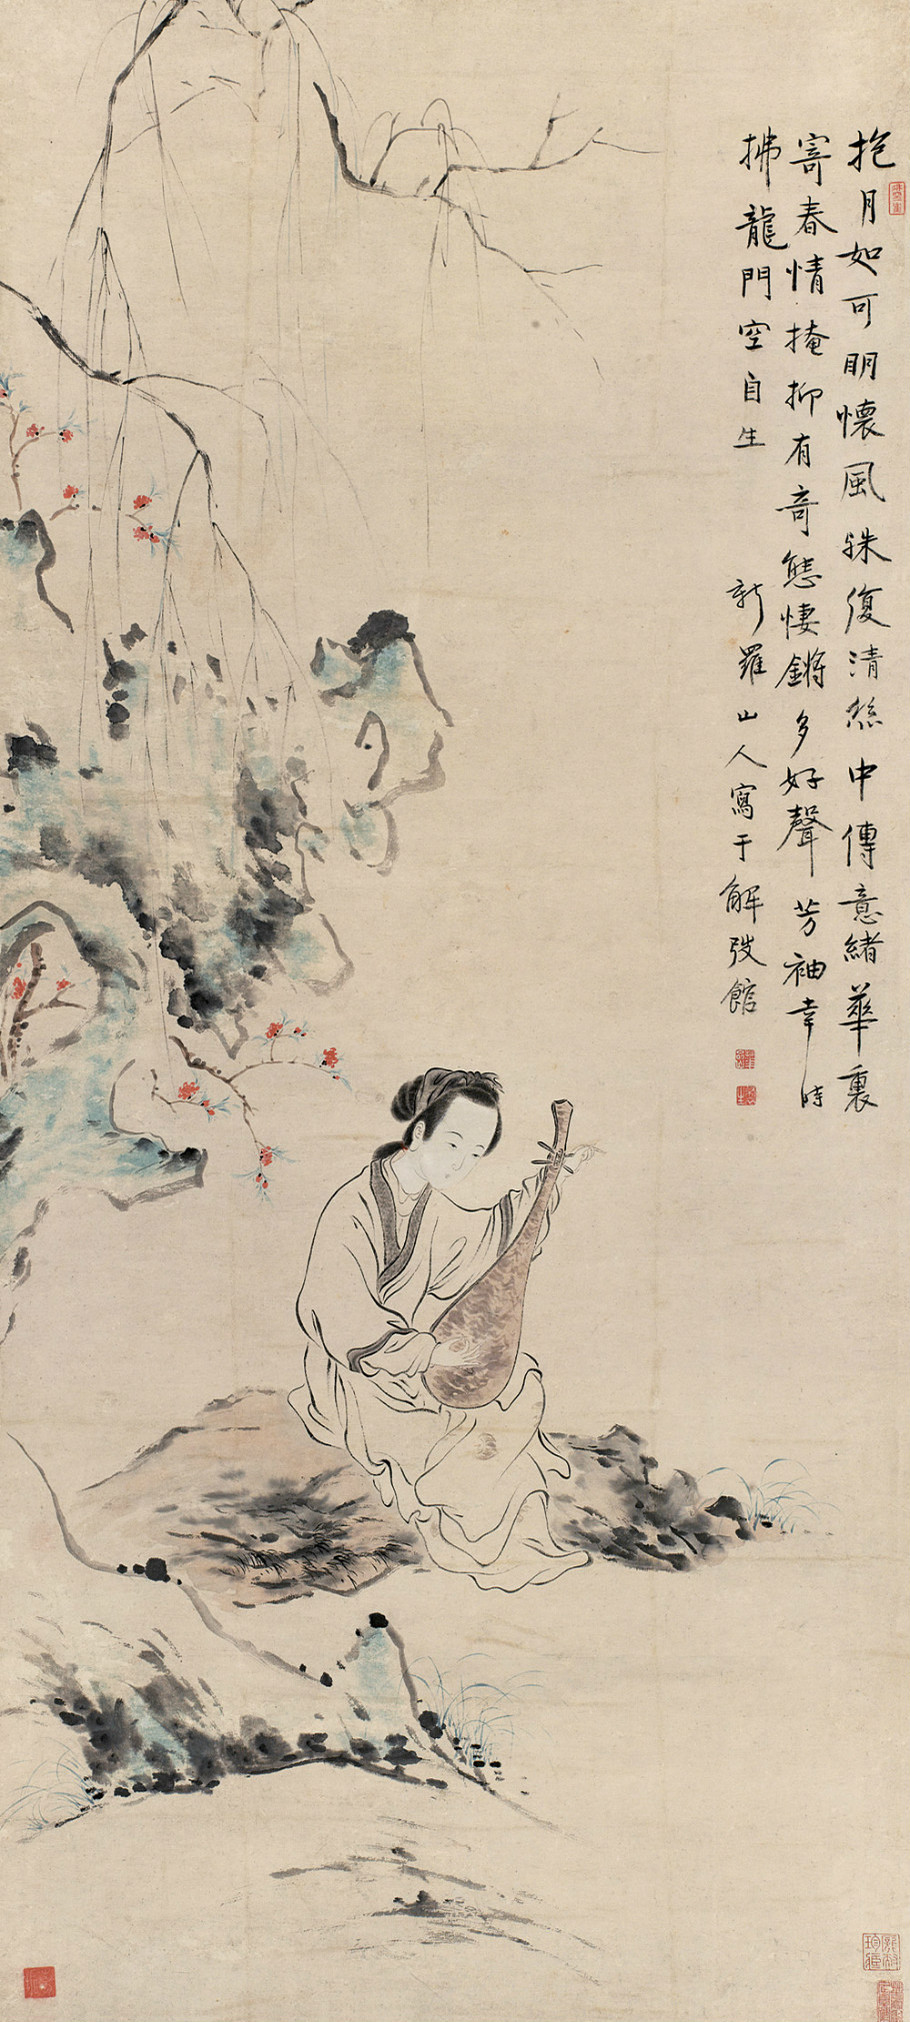 抱月如可明懷風殊復清絲中傳意緒華裏
寄春情掩抑有竒態悽鏘多好聲芳袖幸時
拂龍門空自生 新羅山人寫于解弢館